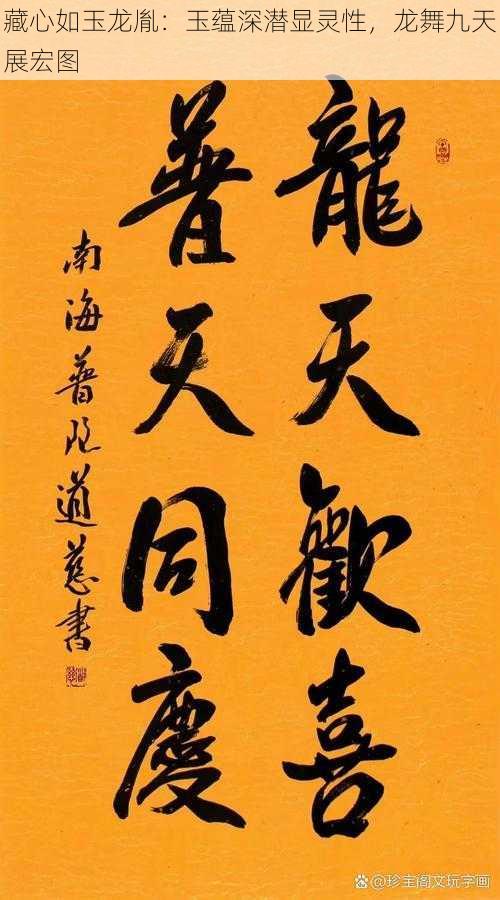 藏心如玉龙胤：玉蕴深潜显灵性，龙舞九天
展宏图
龍天歡喜
普天同慶
南海普陀道慈書
@珍宝阁文玩字画